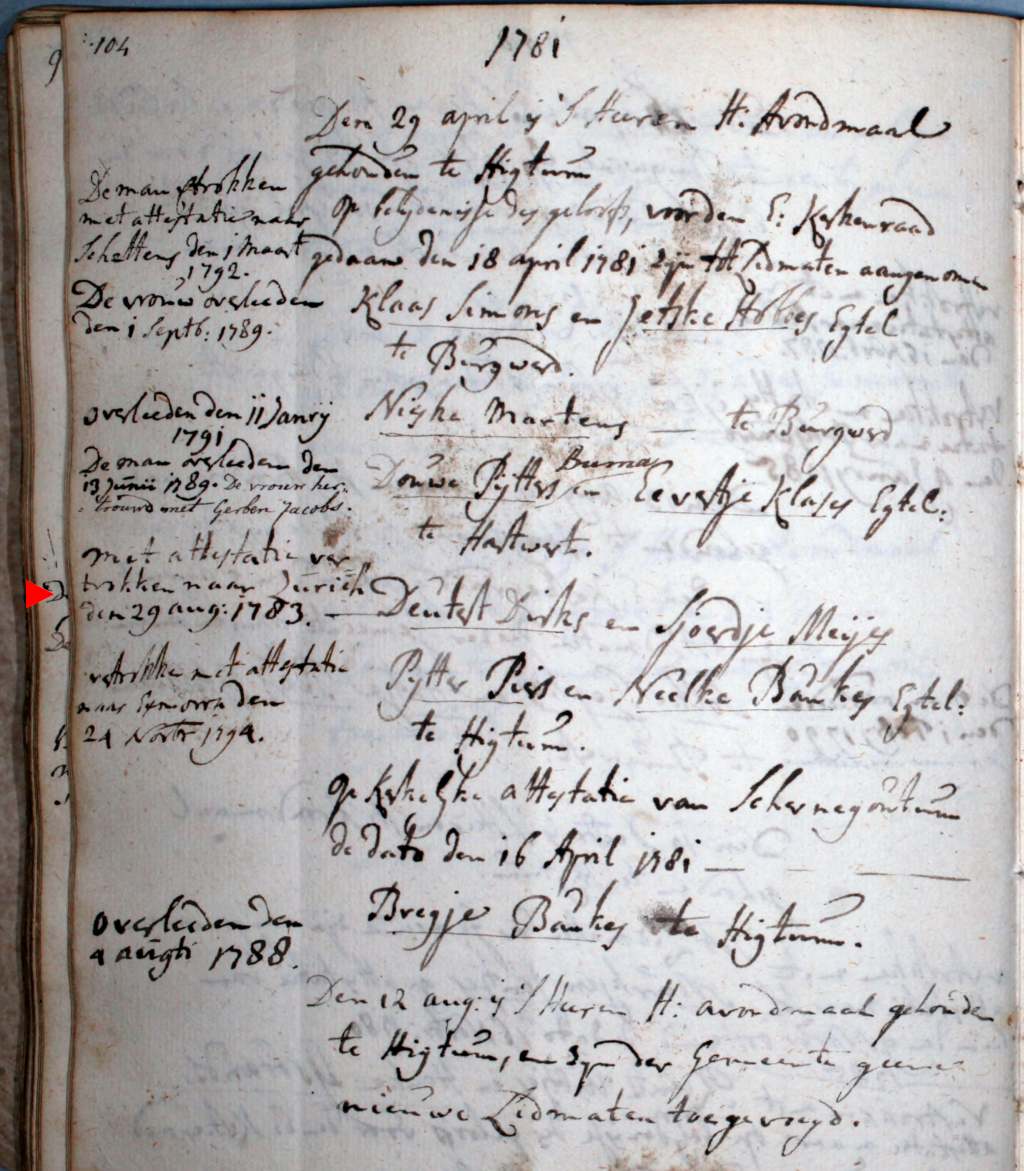 104
1781
Den 29 april is 'S Heeren H: Avondmaal
gehouden te Higtum
De man vertrokken
met attestatie naar
Schettens den 1 Maart
1792.
op belydenisse des geloofs, voor den E: Kerkenraad
gedaan den 18 april 1781 zyn tot Lidmaten aangenomen
De vrouw overleeden
den 1 Septb: 1789.
Klaas Simons en Jetske Obbes Egtel
te Burgwerd.
overleeden den 11 Janrij
1791
Nieske Martens — te Burgwerd
De man overleeden den
13 Junii 1789. De vrouw her:
trouwd met Gerben Jacobs.
Buma
Douwe Pytters en Eevertje Klases Egtel:
te Hartwert.
met attestatie ver
trokken naar Zurich
den 29 aug: 1783. —
Deutert Dirks en Sjoerdje Meijes
vertrokke met attestatie
naar Exmorra den
24 Novbr 1794.
Pytter Piers en Neelke Baukes Egtel:
te Higtum.
op Kerkelyke attestatie van Scharnegoutum
de dato den 16 April 1781 —
overleeden den
4 augti 1788.
Bregje Baukes te Higtum.
Den 12 aug: is 'S Heeren H: avondmaal gehouden
te Higtum, en zyn der Gemeente geene
nieuwe Lidmaten toegevoegd.